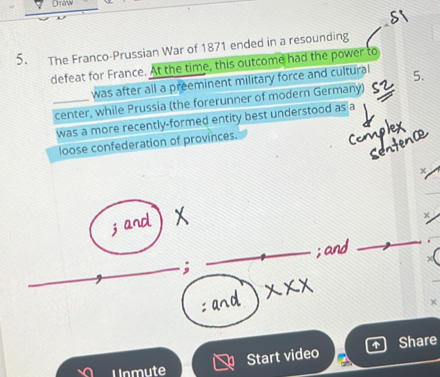 Draw
S1
5. The Franco-Prussian War of 1871 ended in a resounding
defeat for France. At the time, this outcome had the power to
____ was after all a preeminent military force and cultural
center, while Prussia (the forerunner of modern Germany)
was a more recently-formed entity best understood as a
loose confederation of provinces.
S2
5.
complex
sentence
; and X
____,____; ____,____; and ____,____.
: and XXX
Unmute
Start video
Share